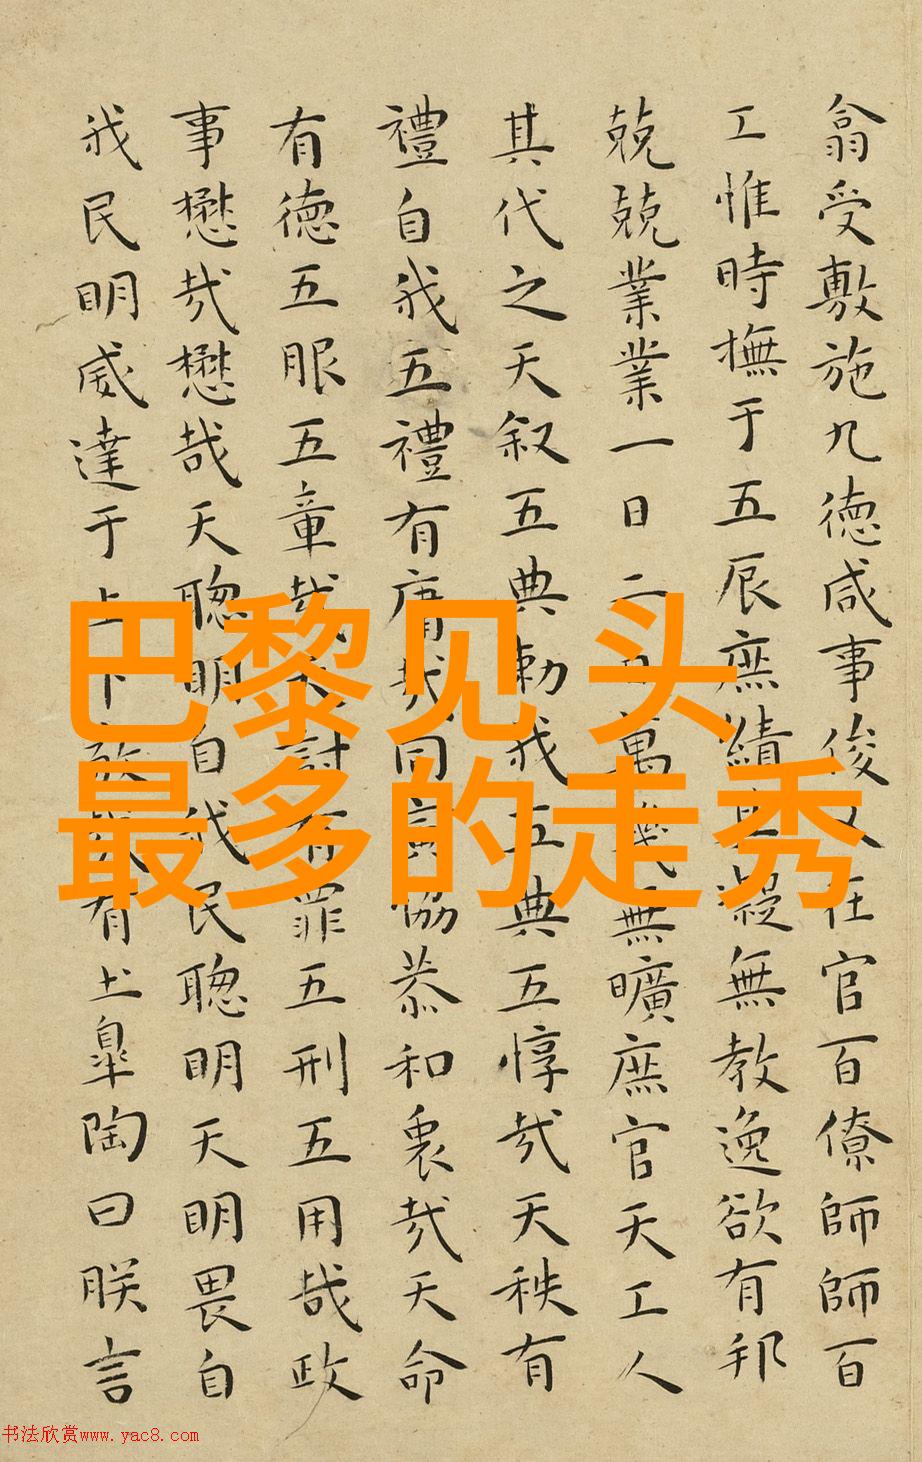 翕受敷施九德咸事俊乂在官百僚師師百
工惟時撫于五辰庶績其凝無教逸欲有邦
兢兢業業一日二日萬幾無曠庶官天工人
其代之天叙五典勅我五典五惇哉天秩有
禮自我五禮有庸哉同寅協恭和衷哉天命
有德五服五章哉天討有罪五刑五用哉政
事懋哉懋哉天聰明自我民聰明天明畏自
我民明威達于上下敬哉有土皐陶曰朕言
巴黎见 头
最多的走秀
书法欣赏www.yac8.com